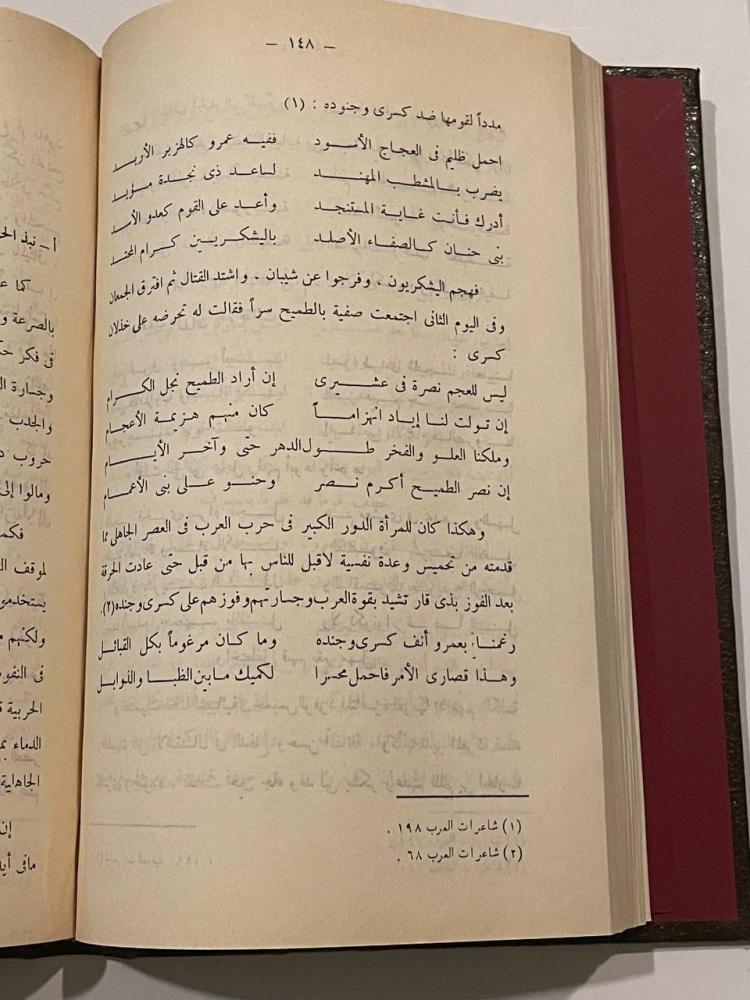 — ١٤٨ —
مدداً لقومها ضد كسرى وجنوده : (١)
احمل ظليم فى العجاج الأسود ففيه عمرو كالهزبر الأربد
يضرب بالمشطب المهند لساعد ذى نجدة مؤيد
أدرك فأنت غاية المستنجد وأعد على القوم كعدو الأسد
بنى حنان كالصفاء الأصلد باليشكريين كرام المحتد
فهجم اليشكريون . وفرجوا عن شيبان . واشتد القتال ثم افترق الجمعان
وفى اليوم الثانى اجتمعت صفية بالطميح سراً فقالت له تحرضه على خذلان
كسرى :
ليس للعجم نصرة فى عشيرى إن أراد الطميح نجل الكرام
إن تولت لنا إياد انهزاماً كان منهم هزيمة الأعجام
وملكنا العلو والفخر طول الدهر حتى وآخر الأيام
إن نصر الطميح أكرم نصر وحنو على بنى الأعمام
وهكذا كان للمرأة الدور الكبير فى حرب العرب فى العصر الجاهلى مما
قدمته من تحميس وعدة نفسية لاقبل للناس بها من قبل حتى عادت الحرقة
بعد الفوز بذى قار تشيد بقوة العرب وجسارتهم وفوزهم على كسرى وجنده (٢).
رغمنا بعمرو أنف كسرى وجنده وما كان مرغوماً بكل القبائل
وهذا قصارى الأمر فاحمل محسرا لكميك مابين الظبا والذوابل
(١) شاعرات العرب ١٩٨ .
(٢) شاعرات العرب ٦٨ .
أ — نبذ
كما
بالصرعة
فى فكر
وجسارة
والجدب
حروب
ومالوا إلى
فكما
لموقف
يستخدمو
ولكنهم
فى النفو
الحربية
الدماء
الجاهلية
إن
مافى